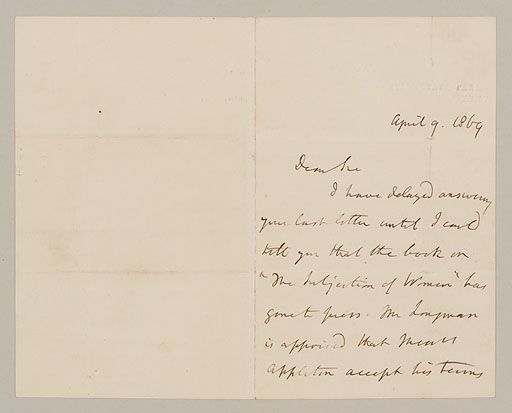 April 9. 1869
Dear Sir
I have delayed answering
your last letter until I could
tell you that the book on
"The Subjection of Women" has
gone to press. Mr Longman
is apprised that Messrs
Appleton accept his terms